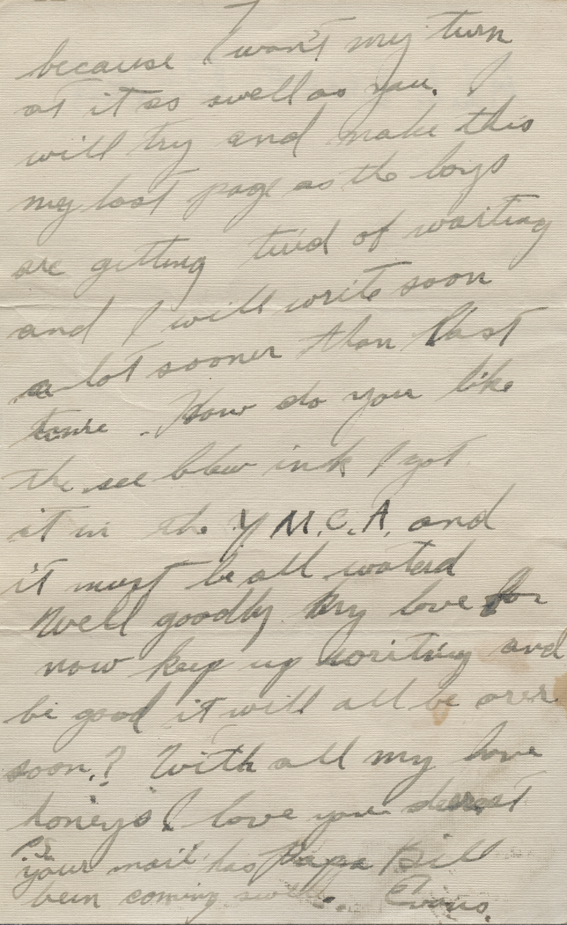 because I want my turn
at it as swell as you. I
will try and make this
my last page as the boys
are getting tierd of waiting
and I will write soon
a lot sooner than last
time. How do you like
the see blew ink I got
it in the Y.M.C.A. and
it must be all waterd
Well goodby my love for
now keep up writing and
be good it will all be over
soon.? With all my love
honeys I love you dearest
P.S. Papa Bill
your mail has
been coming swell. Evans.